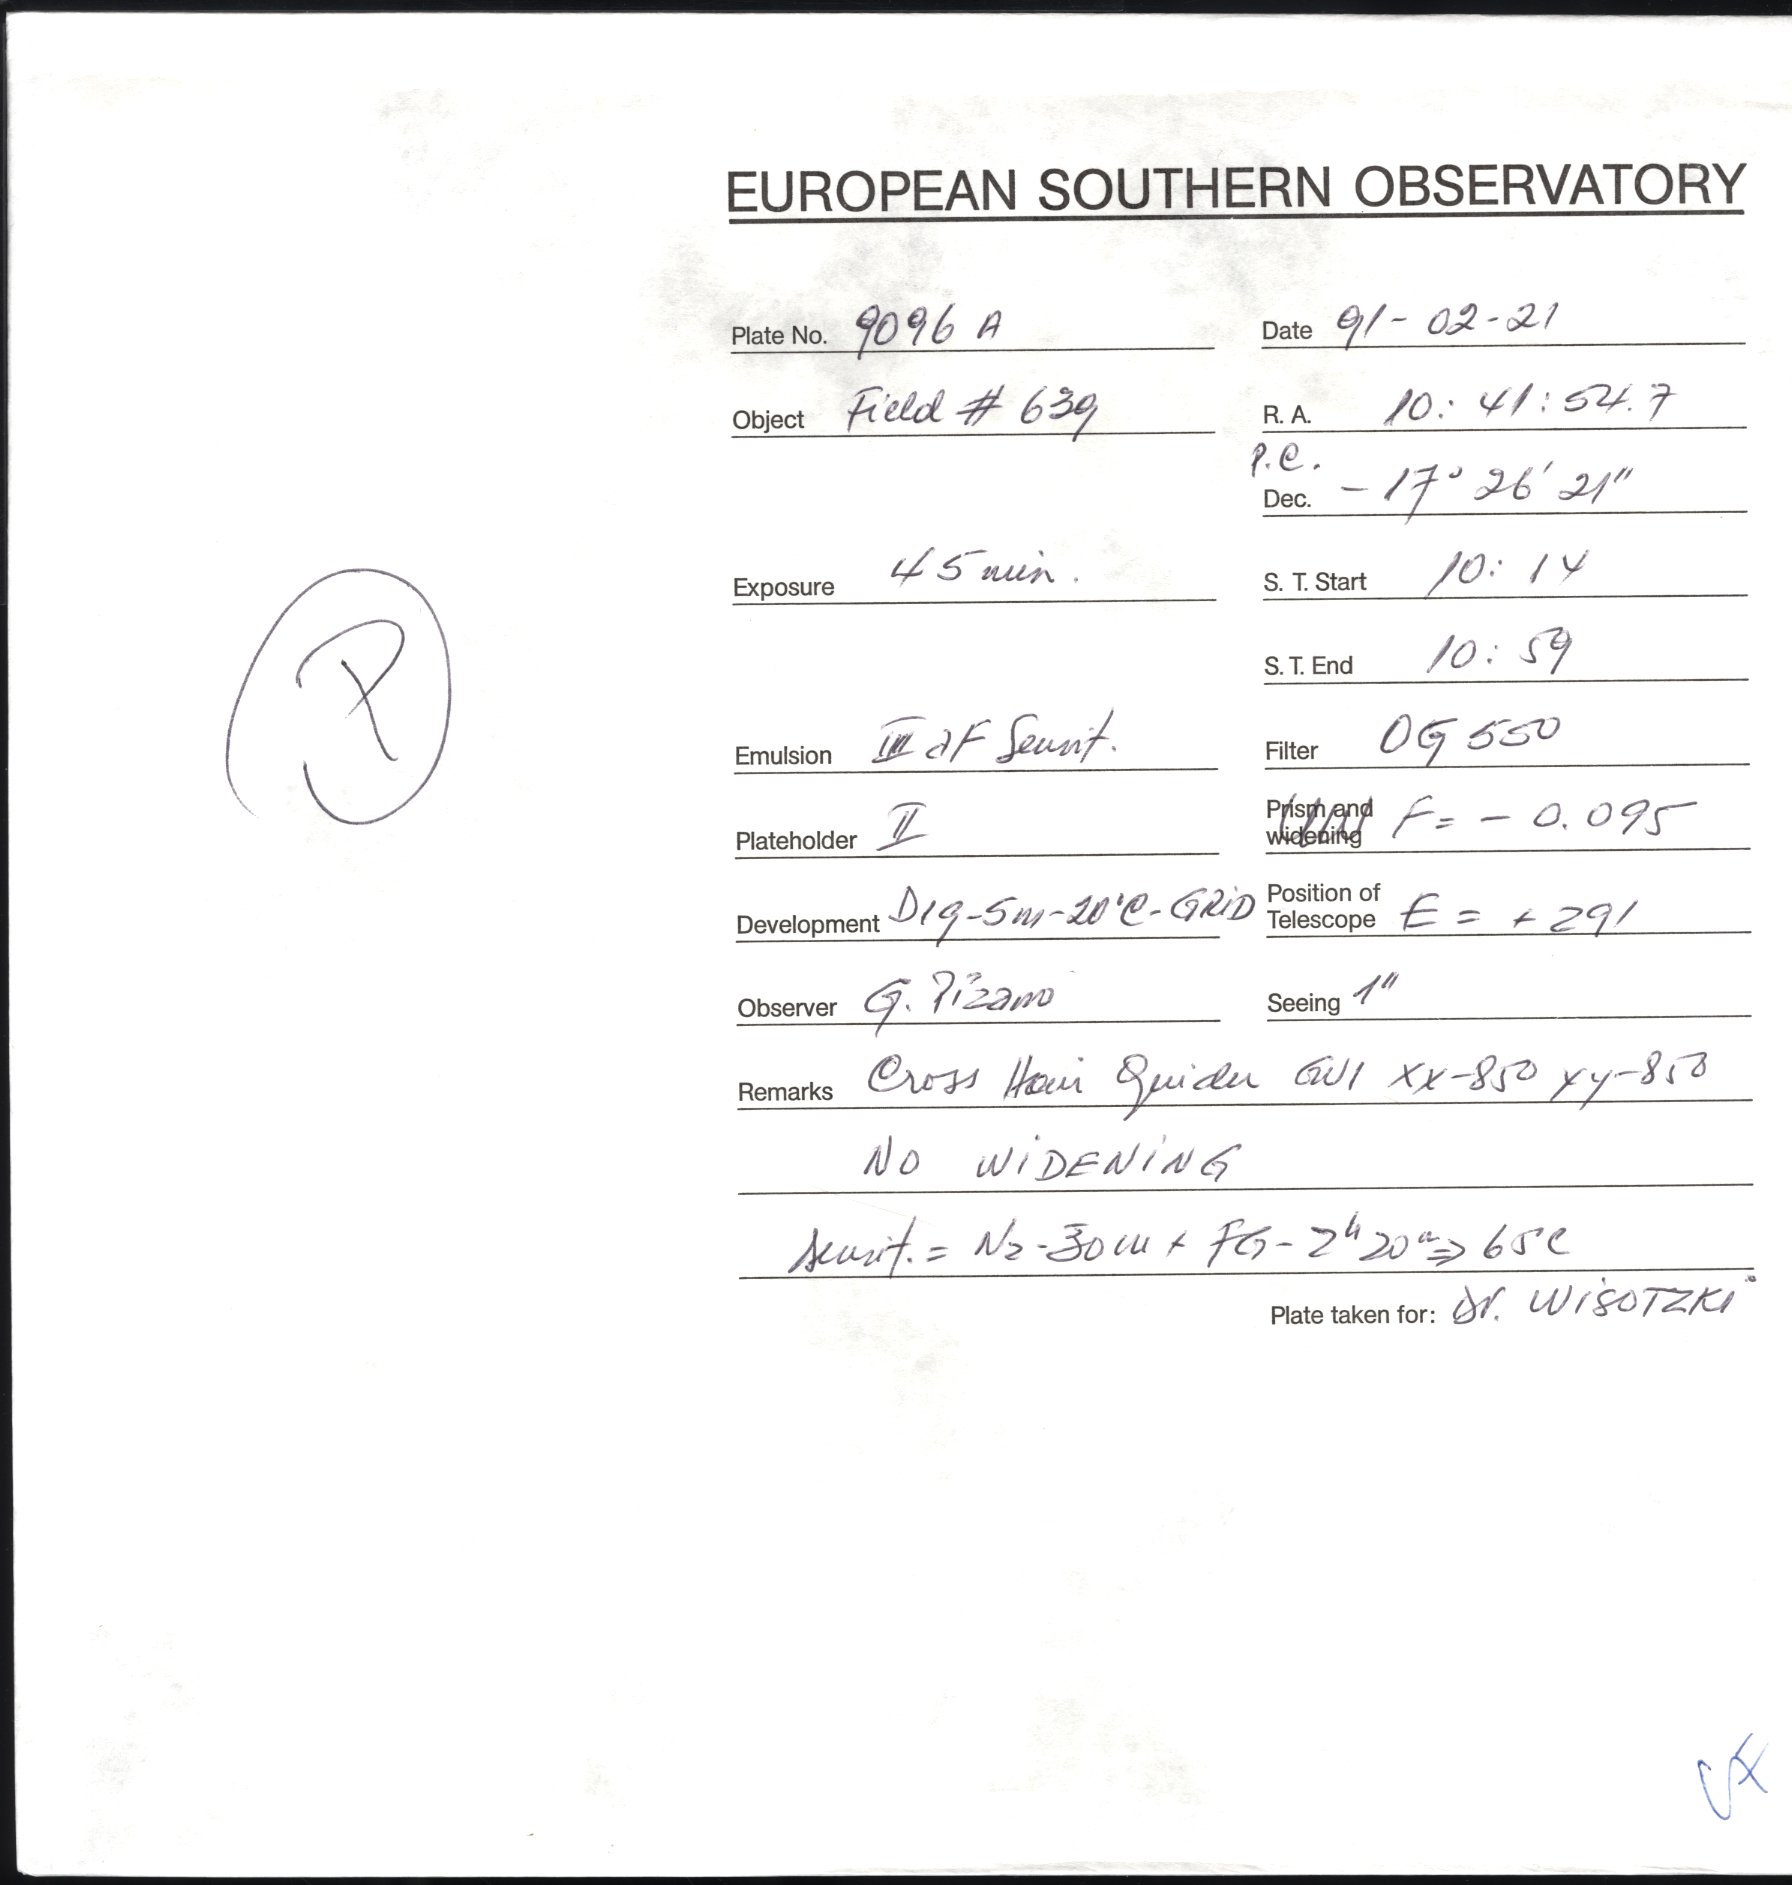 EUROPEAN SOUTHERN OBSERVATORY
Plate No. 9096 A Date 91-02-21
Object Field # 639 R. A. 10: 41: 54.7
P.C.
Dec. - 17° 26' 21"
Exposure 45 min. S. T. Start 10: 14
S. T. End 10: 59
P
Emulsion III aF Sensit. Filter OG 550
Plateholder II Prism and widening F= - 0.095
Development D19-5m-20°C-GRiD Position of Telescope E = + 291
Observer G. Pizarro Seeing 1"
Remarks Cross Hair Guider GW1 XX-850 YY-850
NO WiDENiNG
Sensit. = N2-30m + FG-2h20m => 65C
Plate taken for: Dr. WiSOTZKi